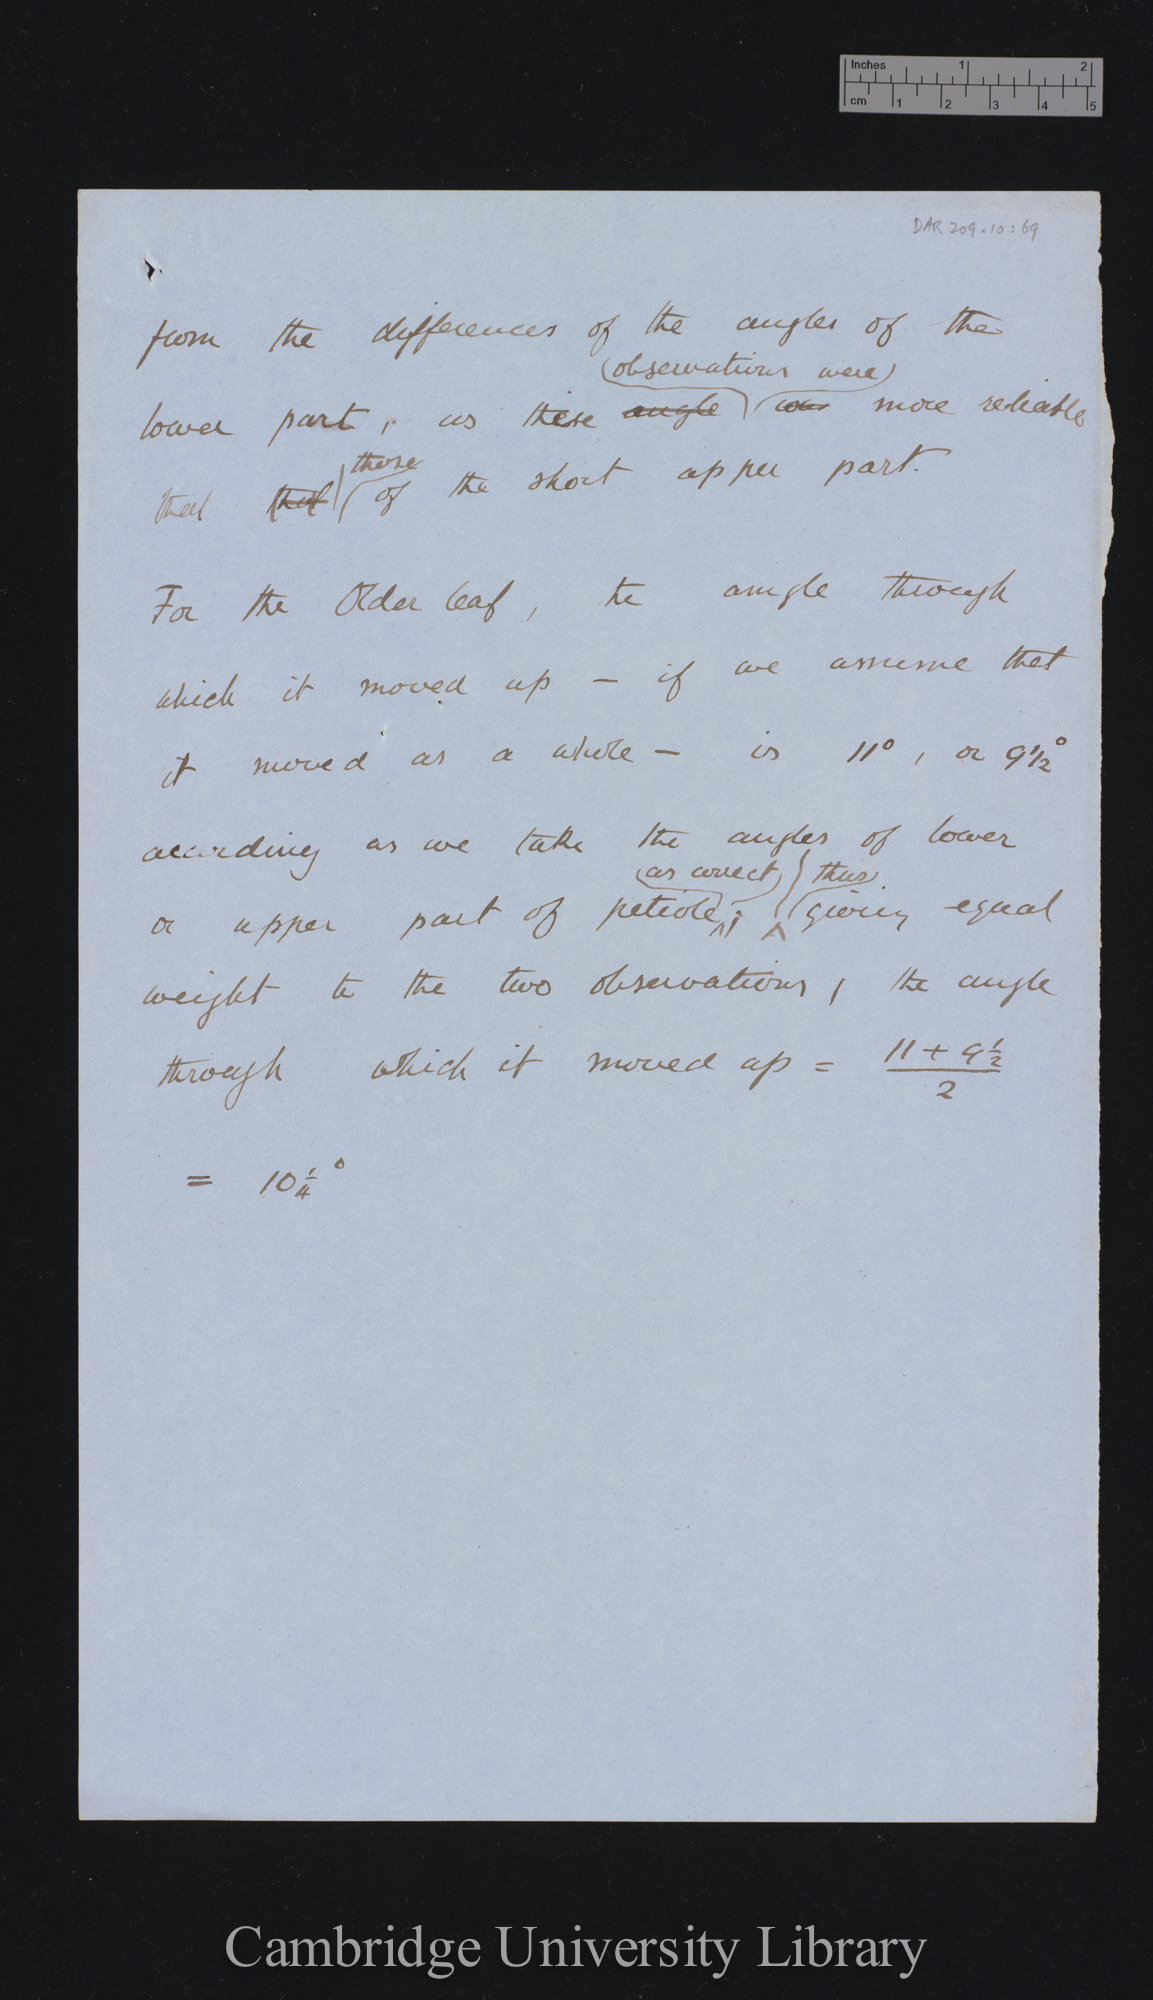 Inches 1 2
cm 1 2 3 4 5
DAR 209.10:69
from the differences of the angles of the
observations were
lower part, as these angle was more reliable
those
that that of the short upper part.
For the Older leaf, the angle through
which it moved up — if we assume that
it moved as a whole — is 11°, or 9½°
according as we take the angles of lower
as correct, thus
or upper part of petiole; giving equal
weight to the two observations, the angle
through which it moved up = 11 + 9½
2
= 10¼°
Cambridge University Library